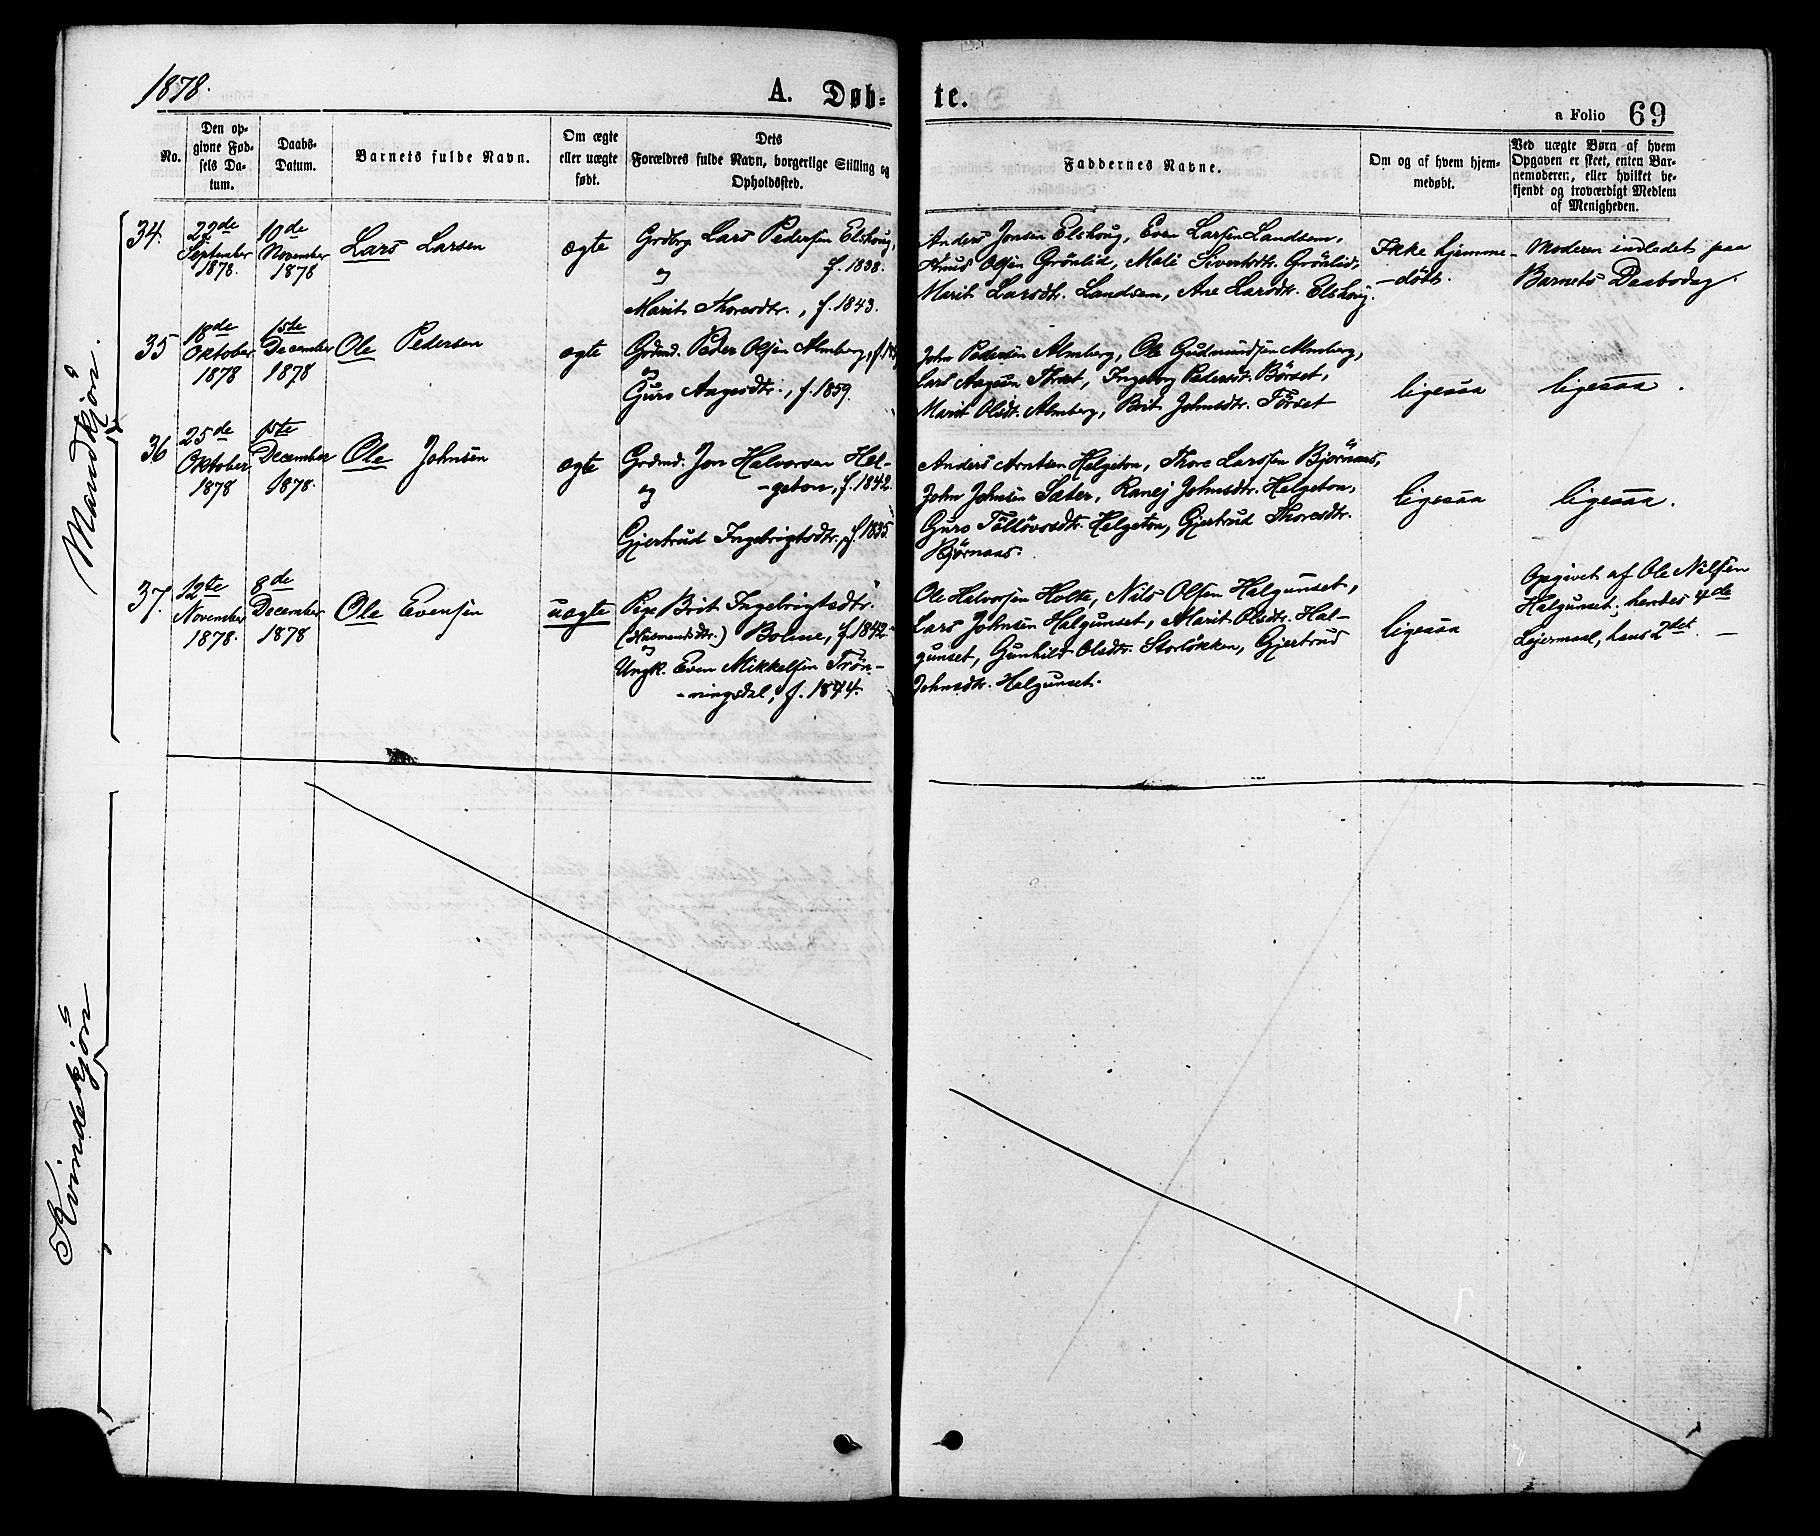 1878.
A. Døb-
te.
a Folio 69
No.
Den op-
givne Fød-
sels Da-
tum.
Daabs-
Datum.
Barnets fulde Navn.
Om ægte
eller uægte
født.
Dets
Forældres fulde Navn, borgerlige Stilling og
Opholdssted.
Faddernes Navne.
Om og af hvem hjem-
medøbt.
Ved uægte Børn af hvem
Opgaven er skeet, enten Bar-
nemoderen, eller hvilket be-
kjendt og troværdigt Medlem
af Menigheden.
Mandkjön.
34.
September
1878.
10de
November
1878
Lars Larsen
ægte
Lars Pedersen Elshoug,
og f. 1838.
Marit Thoresdtr., f. 1843.
Anders Jonsen Elshoug, Even Larsen Landsem,
Knud Olsen Grönlid, Mali Sivertsdtr. Grönlid,
Marit Larsdtr. Landsem, Ane Larsdtr. Elshoug.
Ikke hjemme-
-døbt.
Moderen indledet paa
Barnets Daabsdag.
35
18de
Oktober
1878
1ste
December
1878
Ole Pedersen
ægte
Grdmd. Peder Olsen Almberg,
og
Guro Aagesdtr., f. 1859.
John Pedersen Almberg, Ole Gudmundsen Almberg,
Lars Aagesen Thræt, Ingeborg Pedersdt. Börset,
Marit Olsdt. Almberg, Brit Johnsdtr. Törset
ligesaa
ligesaa.
36
25de
Oktober
1878
1ste
December
1878.
Ole Johnsen
ægte
Grdmd. Jon Halvorsen Hel-
og -geton, f. 1842.
Gjertrud Ingebrigtsdtr., f. 1835.
Anders Arntsen Helgeton, Thore Larssen Bjørnaas,
John Johnsen Sæter, Ranej Johnsdtr. Helgeton,
Guro Tollövsdtr. Helgeton, Gjertrud Thoresdtr.
Bjørnaas.
ligesaa
ligesaa.
37.
12te
November
1878.
8de
December
1878
Ole Evensen
uægte
Pige Brit Ingebrigtsdtr.
(Huusmandsdtr.) Bolme, f. 1842
og
Ungk. Even Mikkelsen Trön-
-ningsdal, f. 1844.
Ole Halvorsen Holte, Nils Olsen Halgunset,
Lars Johnsen Halgunset, Marit Olsdtr. Hal-
gunset, Gunhild Olsdtr. Storlökken, Gjertrud
Johnsdtr. Halgunset.
ligesaa
Opgivet af Ole Nilsen
Halgunset; hendes 4de
Leiermaal, hans 2det.
Kvindekjön